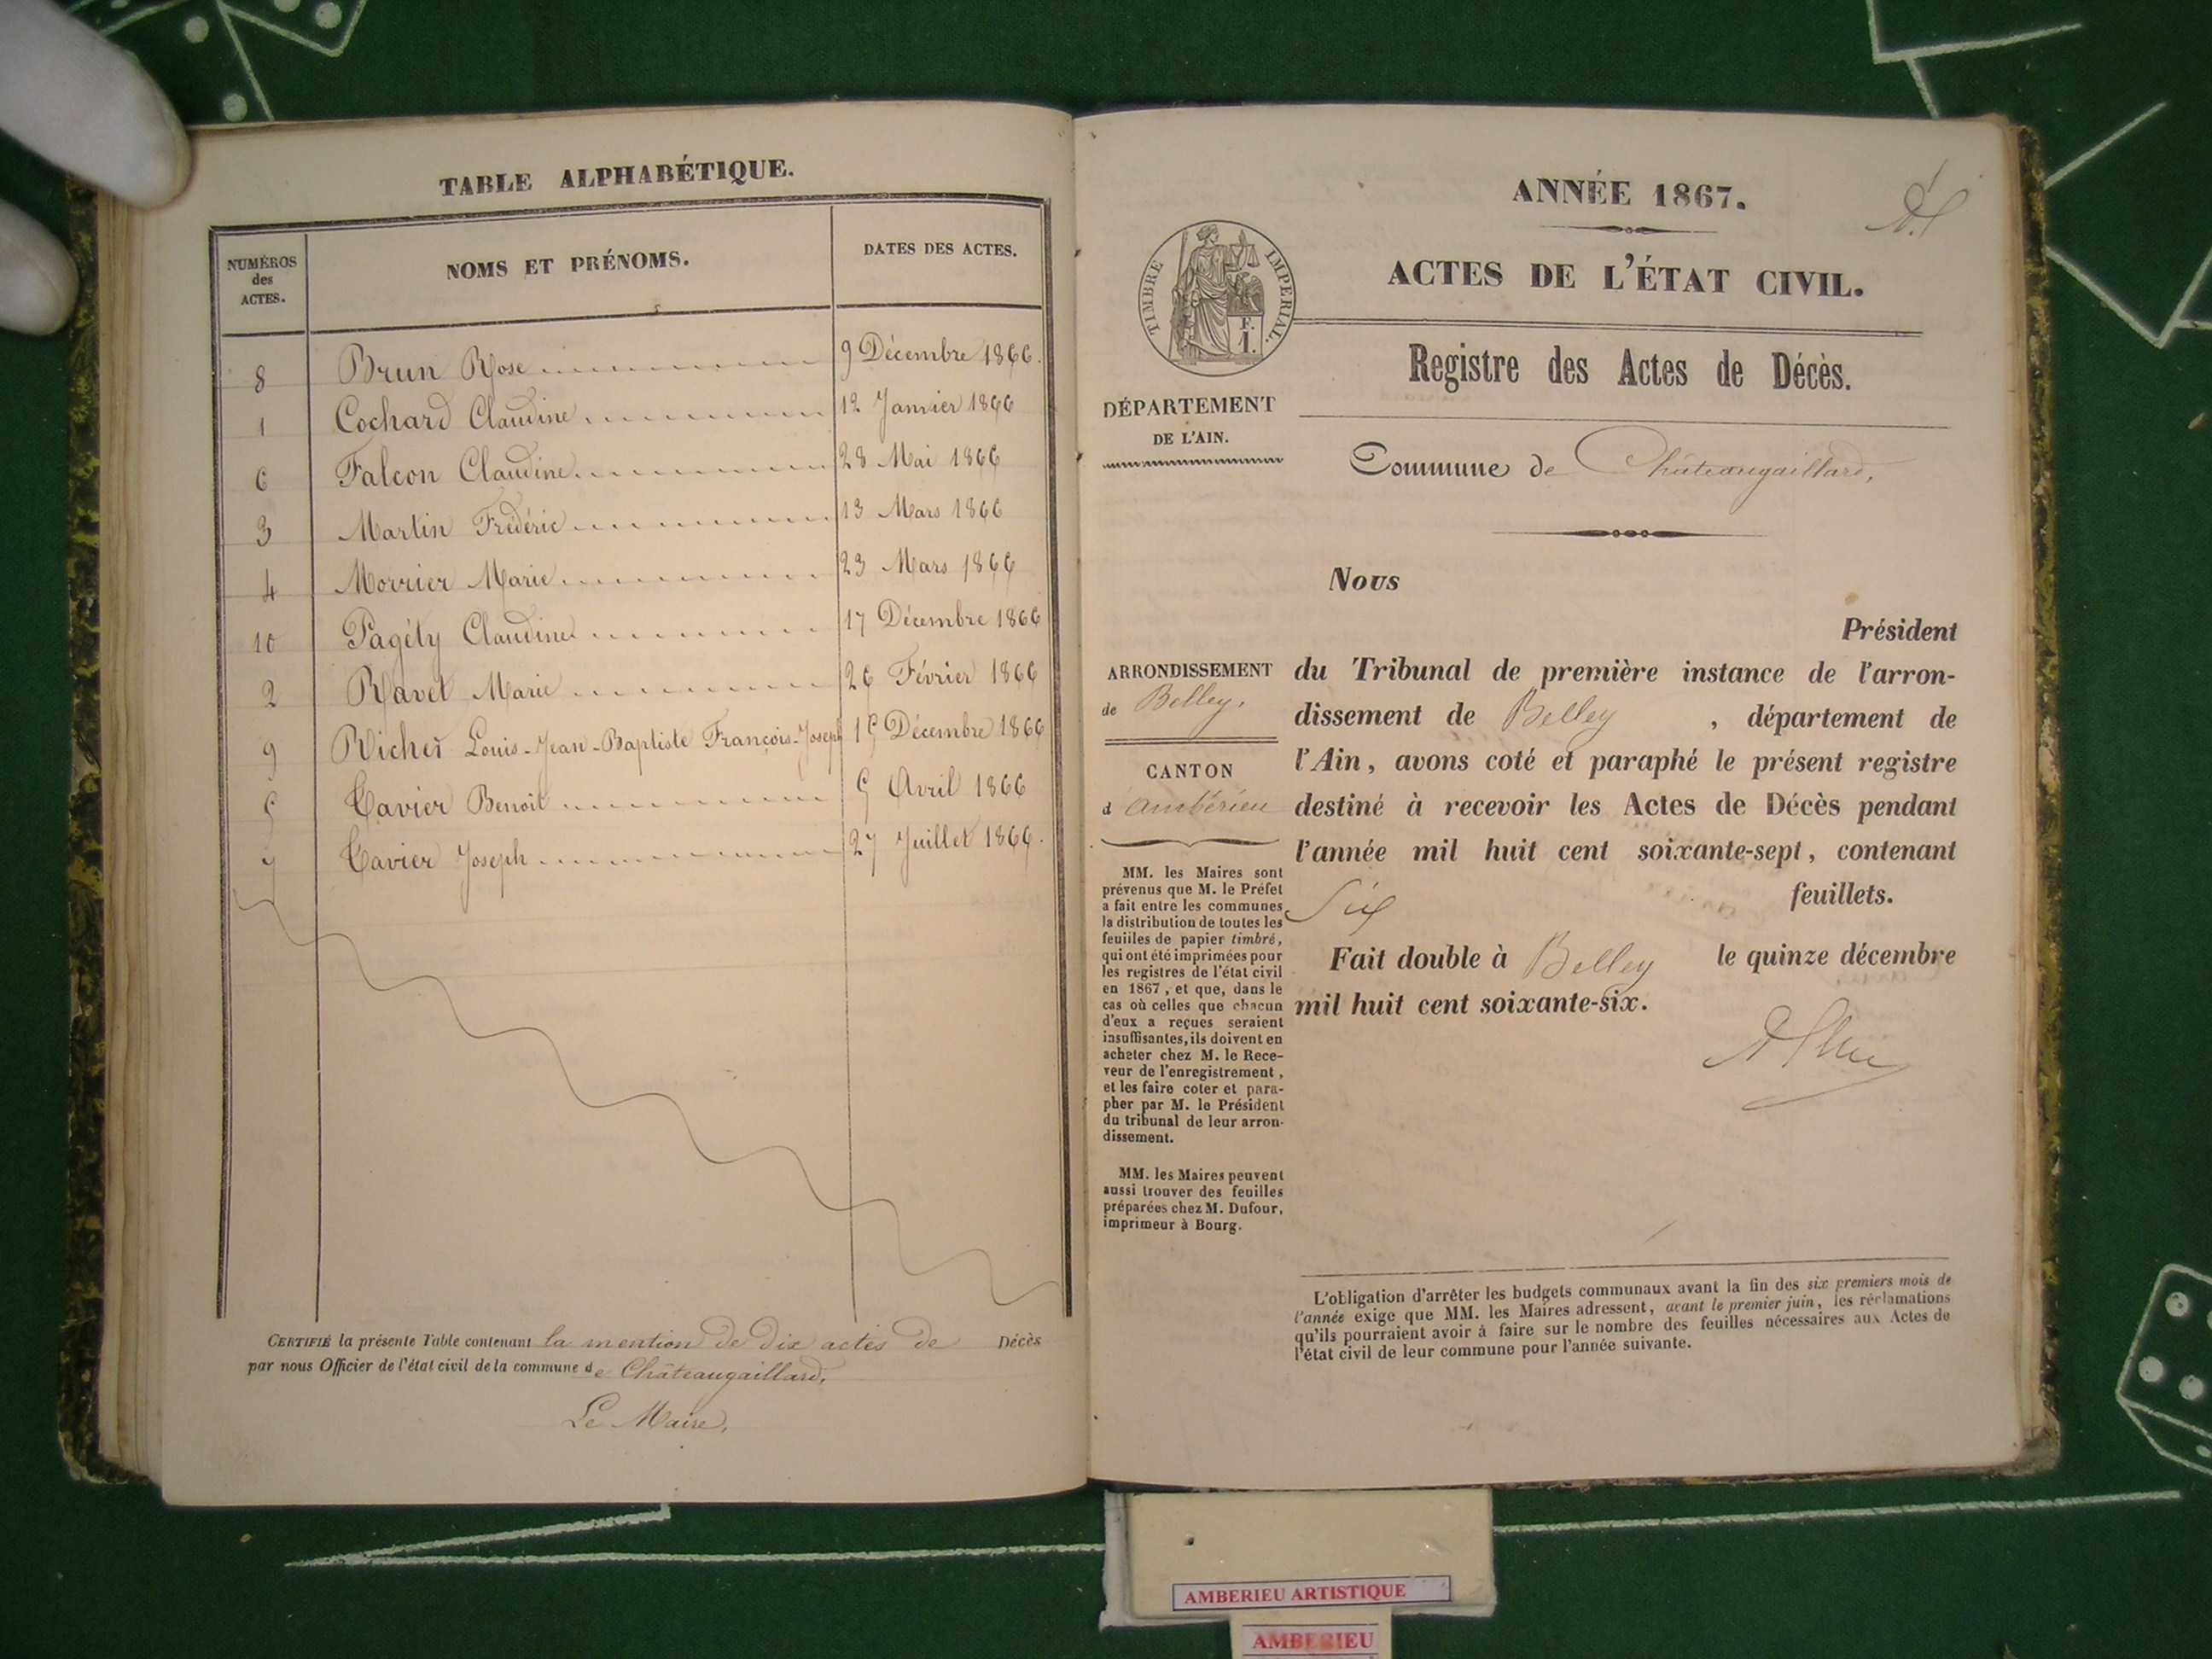 TABLE ALPHABÉTIQUE.
NUMÉROS
des
ACTES.
NOMS ET PRÉNOMS.
DATES DES ACTES.
8 Brun Rose 9 Décembre 1866.
1 Cochard Claudine 12 Janvier 1866
6 Falcon Claudine 28 Mai 1866
3 Martin Frédéric 13 Mars 1866
4 Morrier Marie 23 Mars 1866
10 Pagély Claudine 17 Décembre 1866
2 Ravet Marie 26 Février 1866
9 Richer Louis-Jean-Baptiste François-Joseph 15 Décembre 1866
5 Tavier Benoit 5 Avril 1866
7 Tavier Joseph 27 Juillet 1866.
CERTIFIÉ la présente Table contenant la mention de dix actes de Décès
par nous Officier de l'état civil de la commune de Châteaugaillard,
Le Maire,
ANNÉE 1867.
ACTES DE L'ÉTAT CIVIL.
TIMBRE IMPERIAL.
F.
1.
Registre des Actes de Décès.
DÉPARTEMENT
DE L'AIN.
Commune de Châteaugaillard,
Nous
Président
du Tribunal de première instance de l'arron-
dissement de Belley , département de
l'Ain, avons coté et paraphé le présent registre
destiné à recevoir les Actes de Décès pendant
l'année mil huit cent soixante-sept, contenant
Six feuillets.
Fait double à Belley le quinze décembre
mil huit cent soixante-six.
ARRONDISSEMENT
de Belley,
CANTON
d'Ambérieu
MM. les Maires sont
prévenus que M. le Préfet
a fait entre les communes
la distribution de toutes les
feuilles de papier timbré,
qui ont été imprimées pour
les registres de l'état civil
en 1867, et que, dans le
cas où celles que chacun
d'eux a reçues seraient
insuffisantes, ils doivent en
acheter chez M. le Rece-
veur de l'enregistrement,
et les faire coter et para-
pher par M. le Président
du tribunal de leur arron-
dissement.
MM. les Maires peuvent
aussi trouver des feuilles
préparées chez M. Dufour,
imprimeur à Bourg.
L'obligation d'arrêter les budgets communaux avant la fin des six premiers mois de
l'année exige que MM. les Maires adressent, avant le premier juin, les réclamations
qu'ils pourraient avoir à faire sur le nombre des feuilles nécessaires aux Actes de
l'état civil de leur commune pour l'année suivante.
AMBERIEU ARTISTIQUE
AMBERIEU